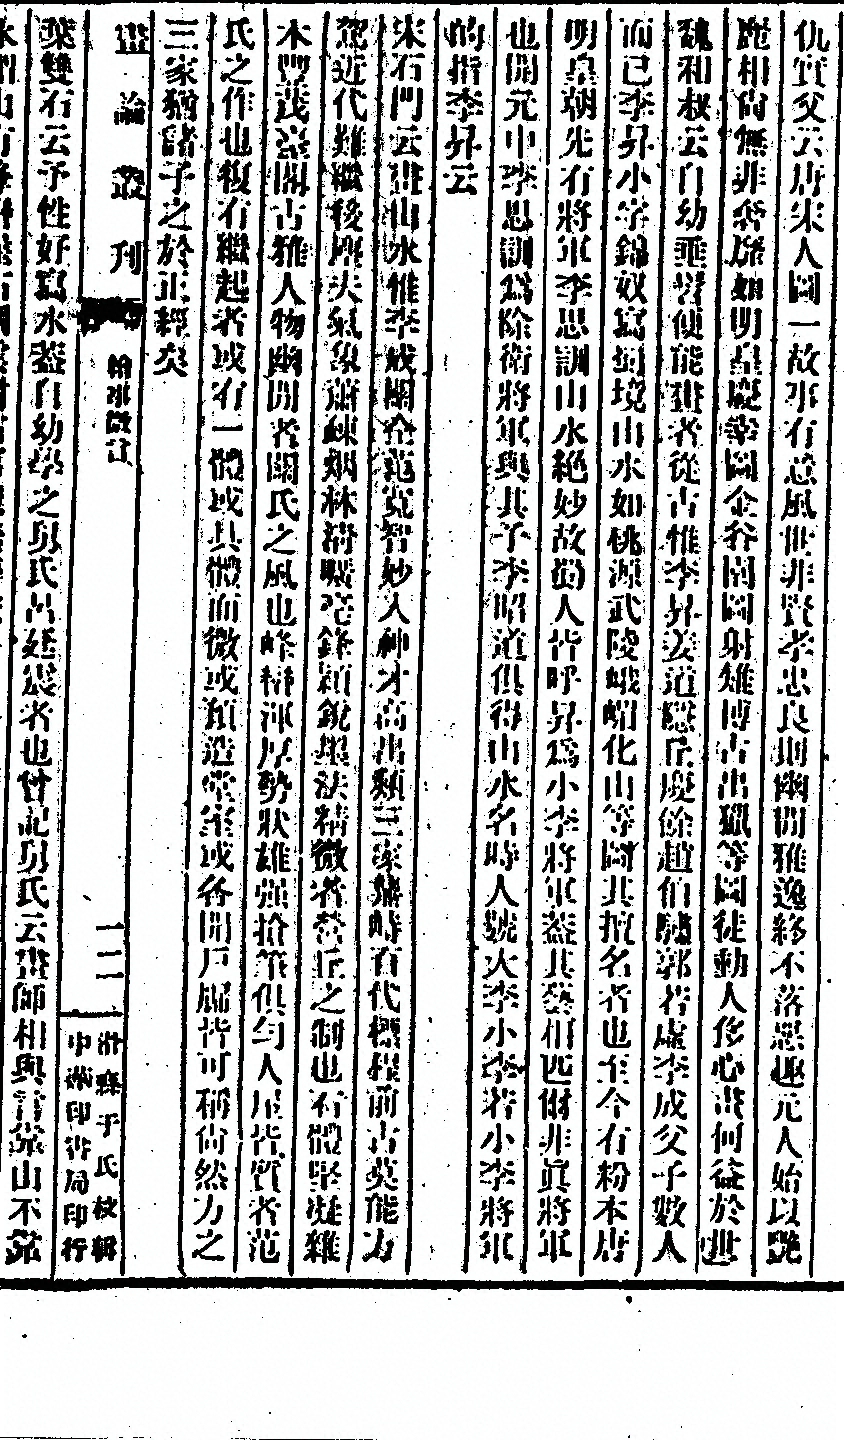 仇實父云唐宋人圖一故事有意風世非賢孝忠良則幽閒雅逸終不落惡趣元人始以艷
麗相尚無非奢縻如明皇慶幸圖金谷園圖射雉博古出獵等圖徒動人侈心畫何益於世
魏和叔云自幼垂髫便能畫者從古惟李昇姜道隱丘慶餘趙伯驌郭若虛李成父子數人
而已李昇小字錦奴寫蜀境山水如桃源武陵峨嵋化山等圖其擅名者也至今有粉本唐
明皇朝先有將軍李思訓山水絕妙故蜀人皆呼昇為小李將軍蓋其藝相匹爾非眞將軍
也開元中李思訓為除衛將軍與其子李昭道俱得山水名時人號大李小李若小李將軍
的指李昇云
宋石門云畫山水惟李成關仝范寬智妙入神才高出類三家鼎峙百代標程前古莫能方
駕近代難繼後塵夫氣象蕭疎烟林清曠毫鋒穎銳墨法精微者營丘之制也石體堅凝雜
木豐茂臺閣古雅人物幽閒者關氏之風也峰巒渾厚勢狀雄强搶筆俱勻人屋皆質者范
氏之作也復有繼起者或有一體或具體而微或預造堂室或各開戶牖皆可稱尚然方之
三家猶諸子之於正經矣
畫論叢刊 繪事微言 一二 沿縣于氏校輯
中華印書局印行
葉雙石云予性好寫水蓋自幼學之舅氏呂廷震者也曾記舅氏云畫師相與言靠山不靠